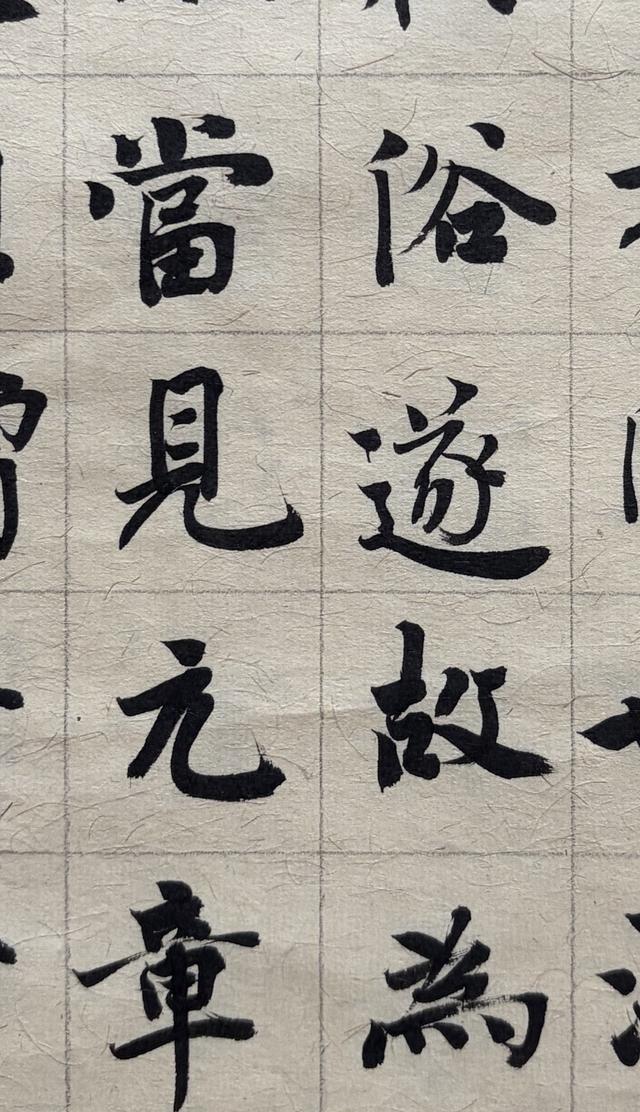 俗遂故為
當見元章